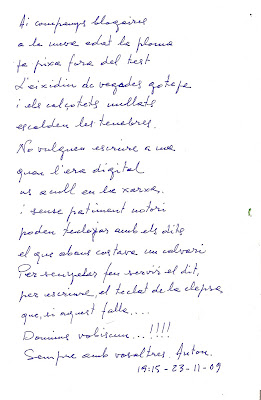 Ai companys blogaires
a la meva edat la ploma
ja pixa fora del test
L'eixidiu de vegades goteja
i els calçotets mullats
escalden les tenebres.
No vulgueu escriure a mà
quan l'era digital
us acull en la xarxa.
i sense patiment notori
podeu teclejar amb els dits
el que abans costava un calvari
Per senyeder feu servir el dit,
per escriure, el teclat de la clepsa
que, si aquest falla....
Dominus vobiscum...!!!!
Sempre amb vosaltres. Anton.
19:15-23-11-09